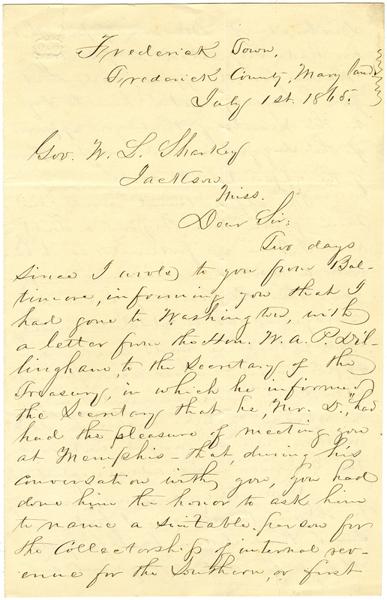 Frederick Town,
Frederick County, Mary land
July 1st. 1865.
Gov. W. L. Sharkey
Jackson
Miss.
Dear Sir;
Two days
since I wrote to you from Bal-
timore, informing you that I
had gone to Washington, with
a letter from the Hon. W. A. P. Dil-
lingham, to the Secretary of the
Treasury, in which he informed
the Secretary that he, "Mr. D., "had
had the pleasure of meeting you
at Memphis - that, during his
conversation with you, you had
done him the honor to ask him
to name a suitable person for
the Collectorship of internal rev-
enue for the Southern, or first